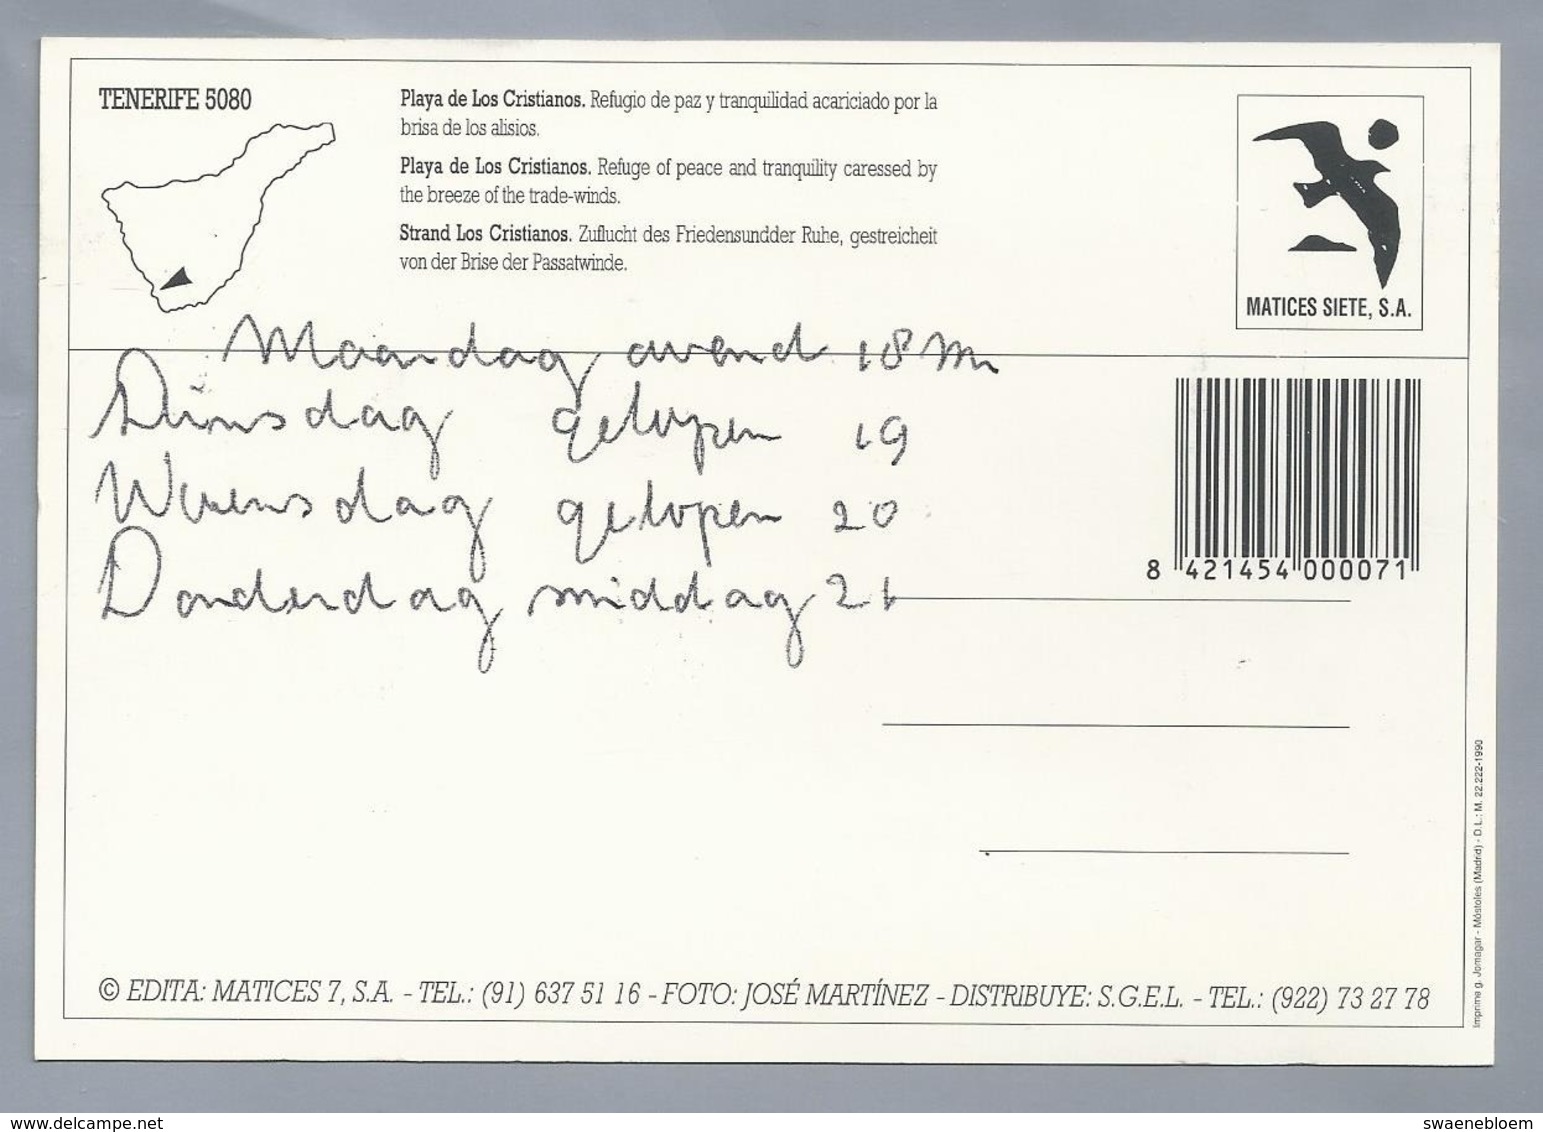 TENERIFE 5080
Playa de Los Cristianos. Refugio de paz y tranquilidad acariciado por la
brisa de los alisios.
Playa de Los Cristianos. Refuge of peace and tranquility caressed by
the breeze of the trade-winds.
Strand Los Cristianos. Zuflucht des Friedensundder Ruhe, gestreicheit
von der Brise der Passatwinde.
MATICES SIETE, S.A.
Maandag avond 18 m
Dinsdag gelopen 19
Woensdag gelopen 20
Donderdag middag 21
8 421454 000071
Imprime g. Jomagar - Móstoles (Madrid) - D.L.: M. 22.222-1990
© EDITA: MATICES 7, S.A. - TEL.: (91) 637 51 16 - FOTO: JOSÉ MARTÍNEZ - DISTRIBUYE: S.G.E.L. - TEL.: (922) 73 27 78
www.delcampe.net
swaenebloem